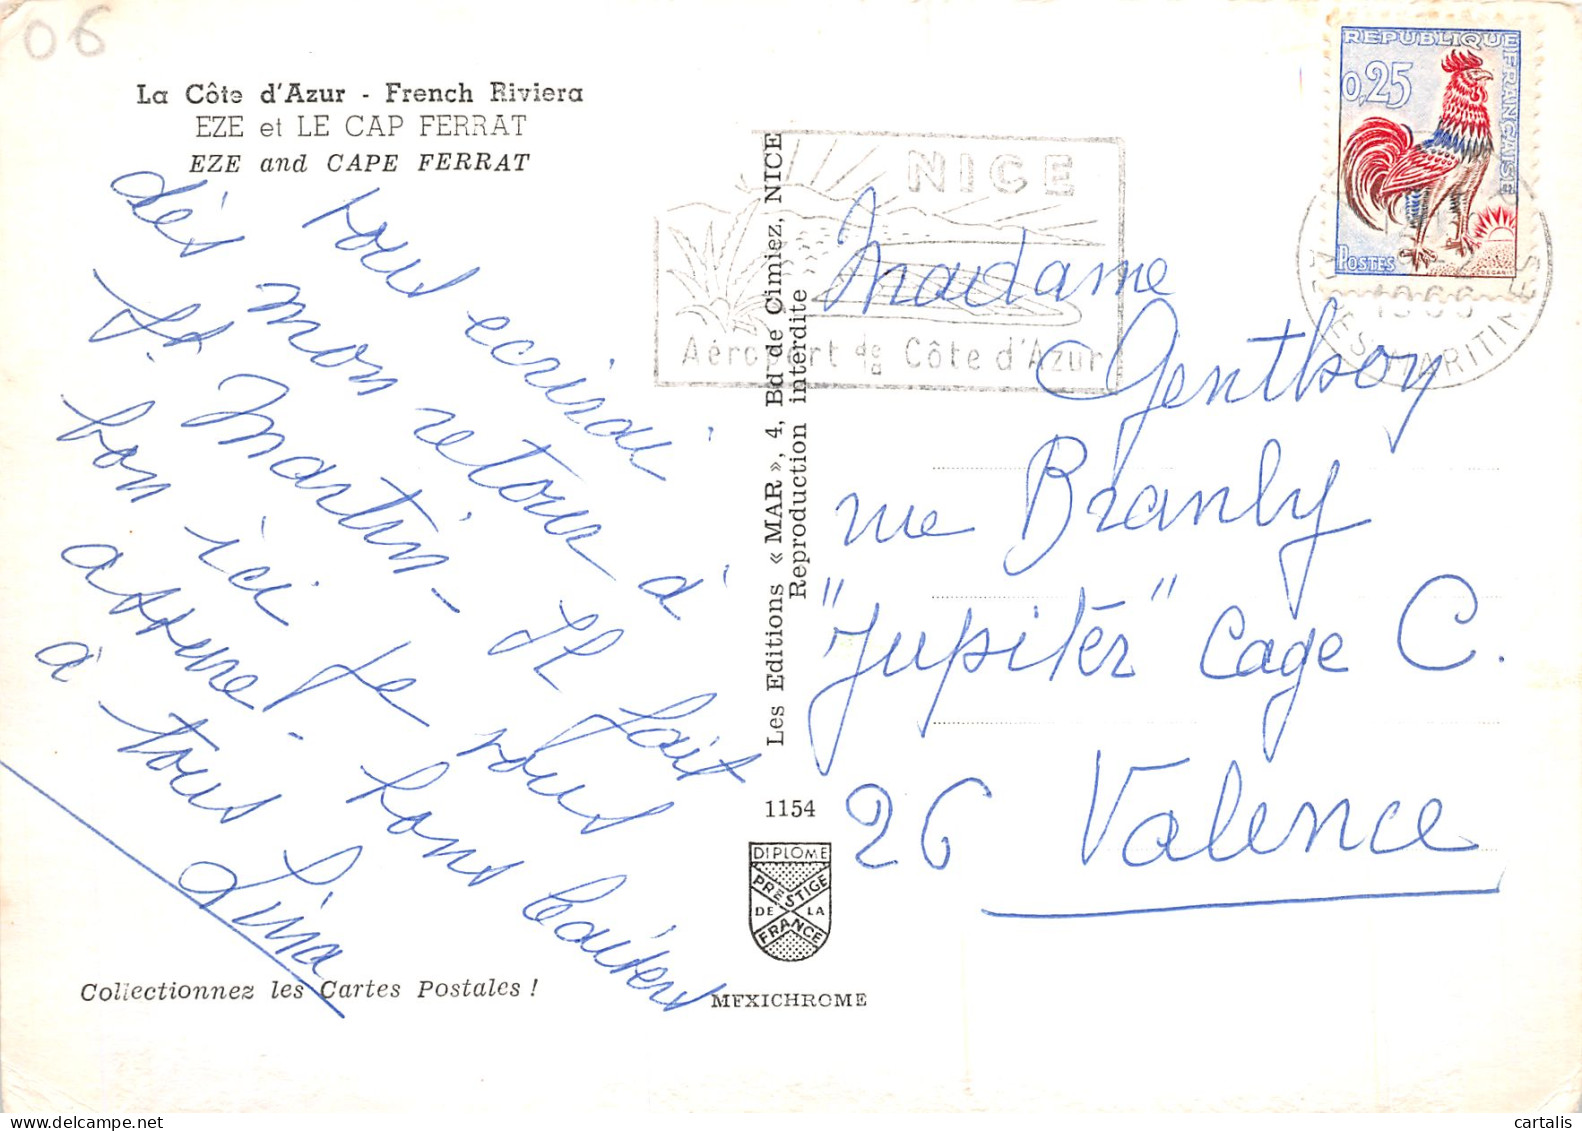 06
La Côte d'Azur - French Riviera
EZE et LE CAP FERRAT
EZE and CAPE FERRAT
vous ecrirai
dès mon retour à
St. Martin - Il fait
bon ici je vous
assure! bons baisers
à tous
Lina
Collectionnez les Cartes Postales !
Les Editions « MAR », 4, Bd de Cimiez, NICE
Reproduction interdite
1154
DIPLOME
PRESTIGE
DE LA
FRANCE
MEXICHROME
NICE
Aéroport de la Côte d'Azur
REPUBLIQUE FRANÇAISE
0,25
POSTES
DECARIS
1966
ALPES MARITIMES
Madame
Genthoy
rue Branly
"Jupitèr" Cage C.
26 Valence
cartalis